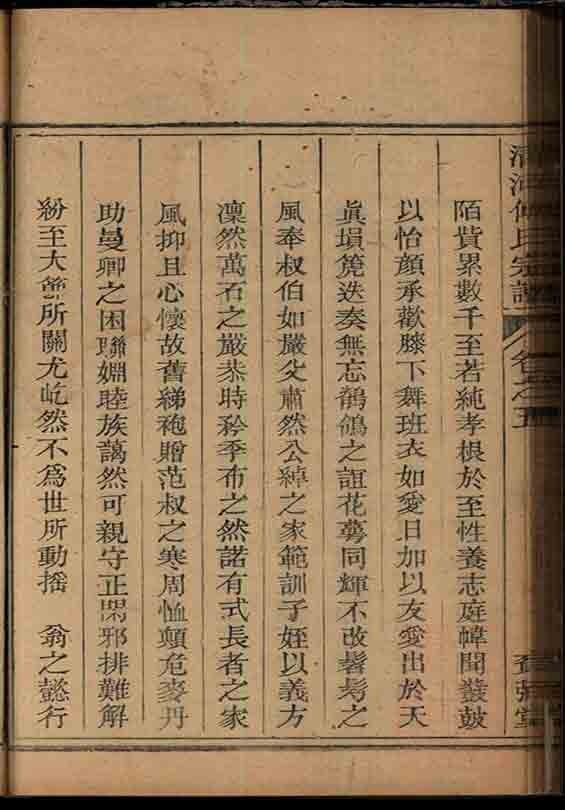 清河 氏宗譜 卷之五
陌貲累數千至若純孝根於至性養志庭幃聞鼛鼓
以怡顏承歡膝下舞班衣如愛日加以友愛出於天
眞塤箎迭奏無忘鶺鴒之誼花蕚同輝不改髫髦之
風奉叔伯如嚴父肅然公綽之家範訓子姪以義方
凜然萬石之嚴恭時矜季布之然諾有式長者之家
風抑且心懷故舊綈袍贈范叔之寒周恤顛危麥丹
助曼卿之困聯婣睦族藹然可親守正閑邪排難解
紛至大節所關尤屹然不爲世所動揺 翁之懿行